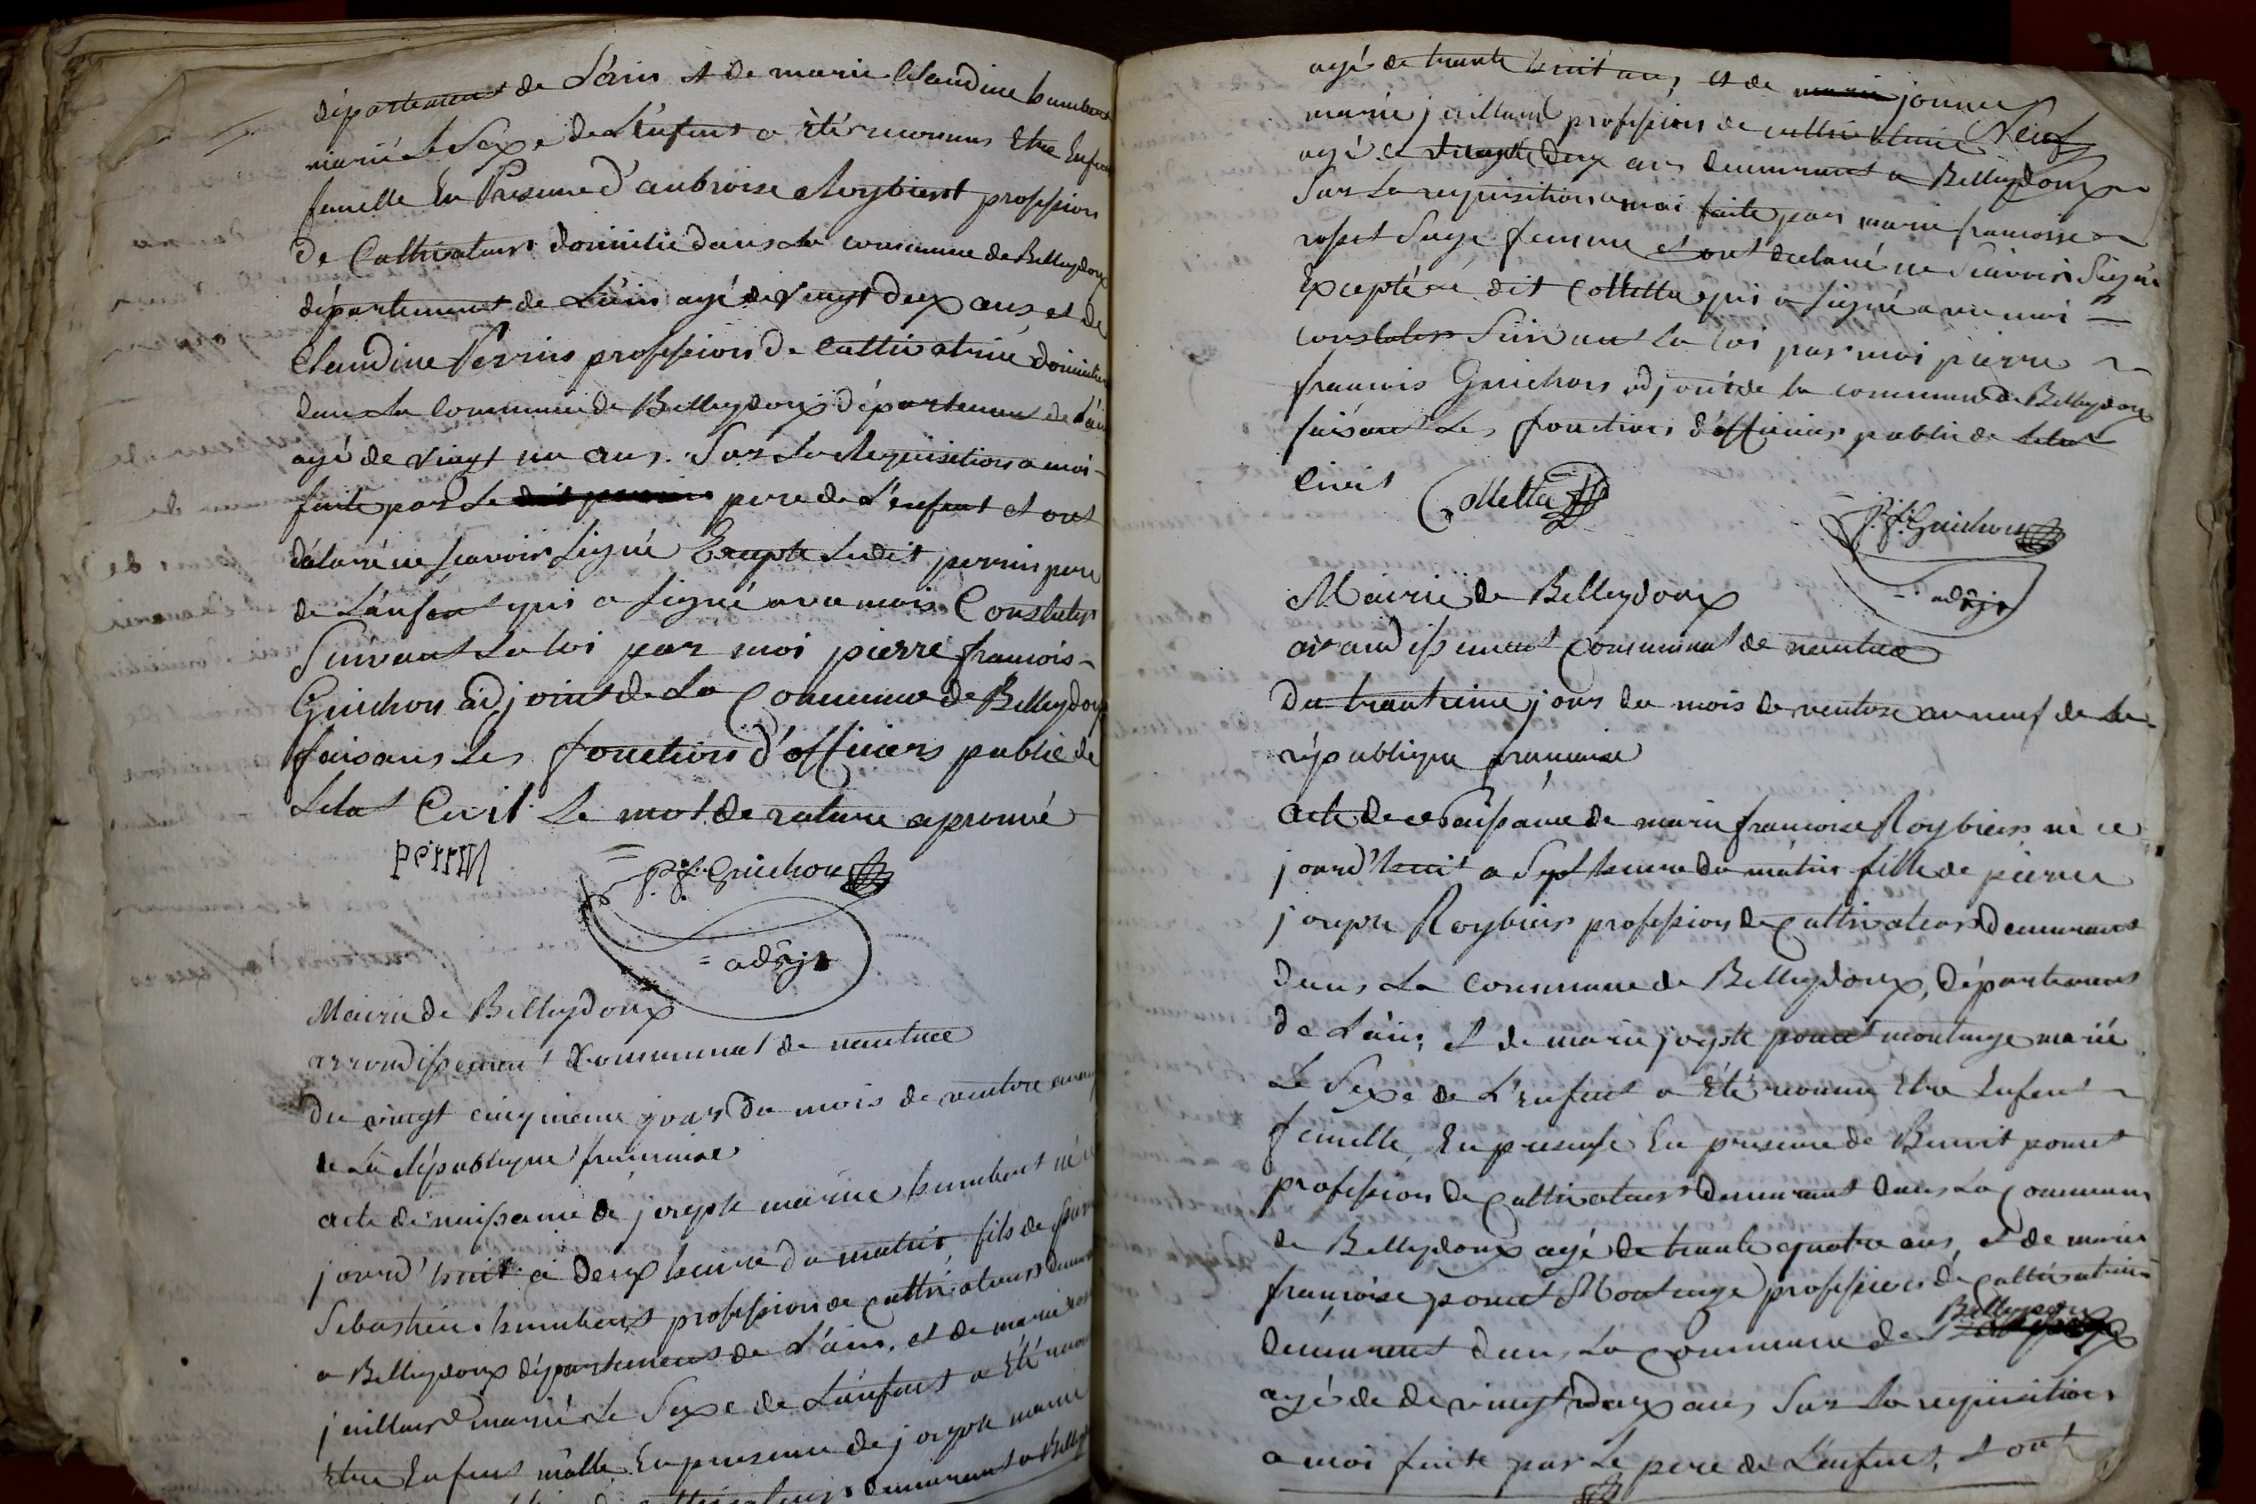 département de L'ain et de marie Claudine humbert
marié Le Sexe de L'enfent a été reconnus Etre Enfent
femelle En Presence d'anbroise Roybient profession
de Cultivateur domicilié dans La commune de Belleydoux
département de L'ain agé de vingt deux ans, et de
Claudine Perrin profession de Cultivatrice domicilié
dans La Commune de Belleydoux département de L'ain
agé de vingt un ans. Sur La Requisition a moi
faite par Le pere de L'enfent et ont
déclaré ne scavoir signé Excepte Ledit perrin pere
de L'enfent qui a signé avec moi. Constater
Suivant La loi par moi pierre francois
Guichon adjoint de La Commune de Belleydoux
faisans Les fonction d'officiers public de
Letat Civil Le mot de rature aprouvé
perrin
P. f. Guichon
adjt
Mairie de Belleydoux
arrondissement Communal de nantua
du vingt cinquieme jour du mois de ventose an
de La République francaise
acte de naissance de joseph marie humbert né
jourd'huit a deux heure du matin, fils de
Sebastien humbert profession de cultivateur
a Belleydoux département de L'ain, et de marie
juillard marié Le Sexe de L'enfent a été
Etre Enfent malle En presence de joseph marie
demeurant a
agé de trante huit ans, et de jeanne
marie juillard profession de Neuf
agé de deux ans demeurant a Belleydoux
Sur La requisition a moi faite par marie francoise
rosset sage femme et ont declaré ne Scavoir Signé
Excepté le dit Colletta qui a signé avec moi
constater Suivant La loi par moi pierre
francois Guichon adjoint de la commune de Belleydoux
faisant Les fonctions d'officier public de Letat
Civil
Colletta
P. f. Guichon
adjt
Mairie de Belleydoux
arrandissement Communal de nantua
Du trantieme jour du mois de ventose an neuf de La
république francaise
acte de naissance de marie francoise Roybier né ce
jourd'huit a Sept heure du matin fille de pierre
joseph Roybier profession de Cultivateur demeurant
dans La commune de Belleydoux, département
de L'ain, et de marie joseph poncet montange marié
Le Sexe de L'enfent a été reconnu Etre Enfent
femelle, En presense En presence de Benoit poncet
profession de Cultivateur demeurant dans La Commune
de Belleydoux agé de trante quatre ans, et de marie
francoise poncet Montange profession de Cultivatrice
demeurent dans La Commune de Belleydoux
agé de de vingt deux ans, Sur La requisition
a moi faite par Le pere de L'enfent, et ont